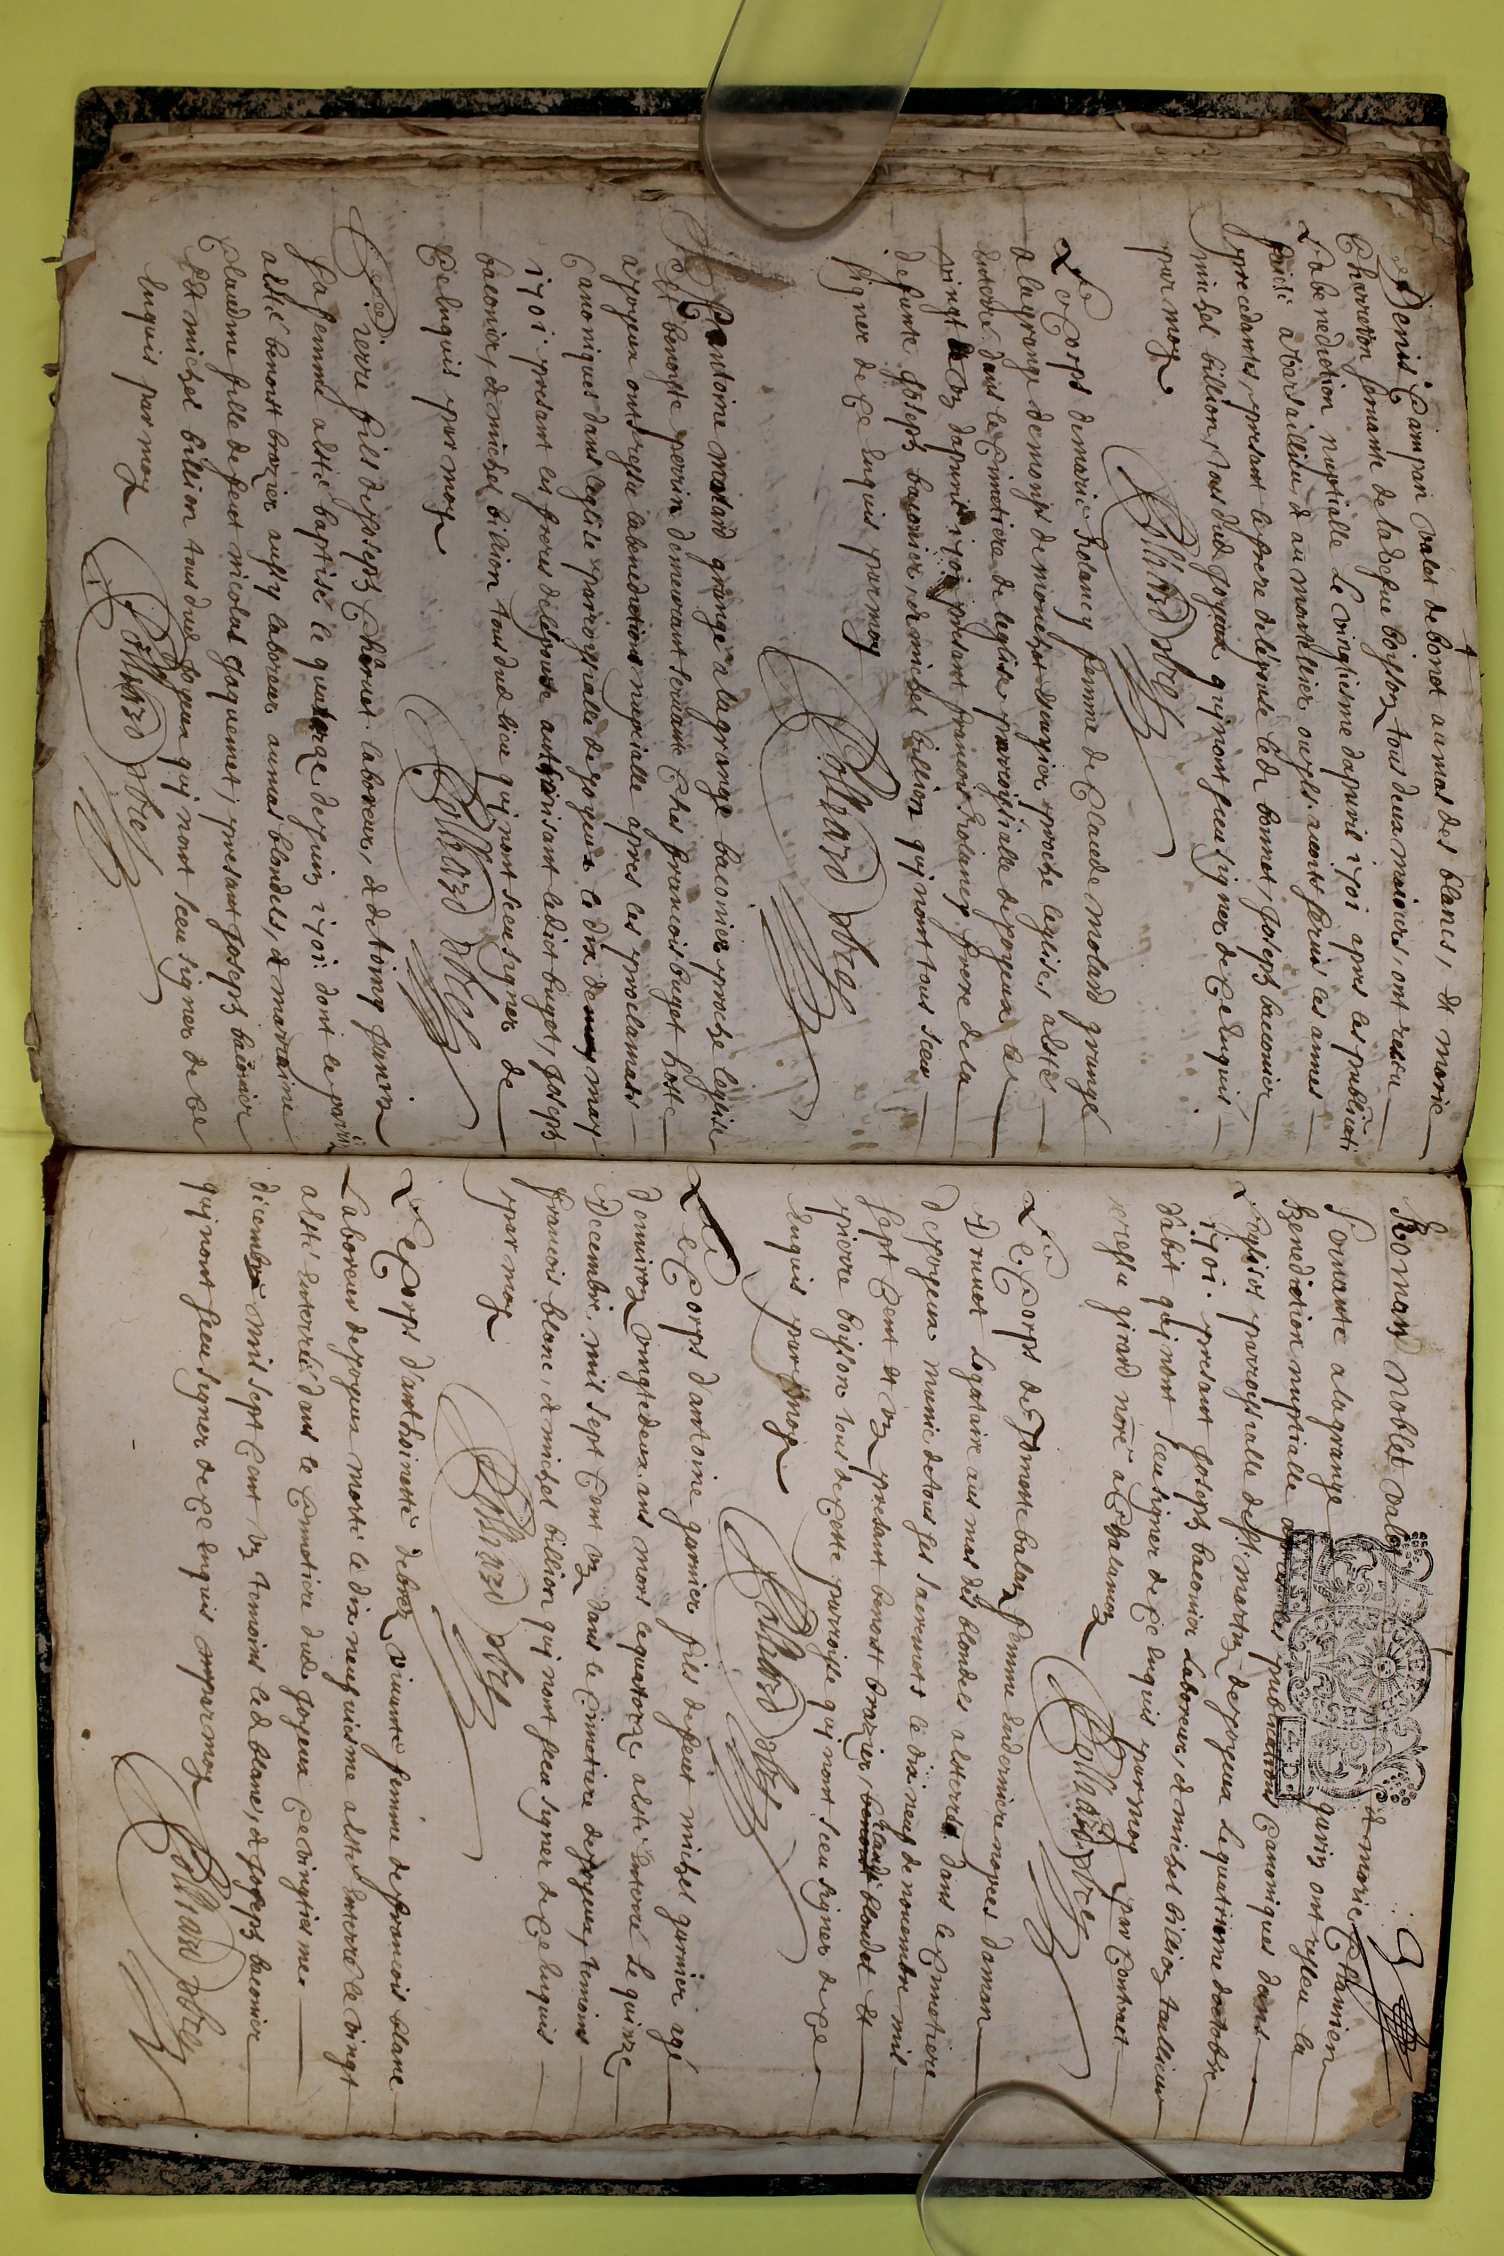 Denis Campan valet de bonet au mas des blancs, et marie
Charreton servante de la defue boisson tous deux maieurs, ont receu
La benediction nuptialle Le vingtiesme dapvril 1701 apres les publicati
faicte a Versaillieu et au montellier ou yls auont servis les annes
precedantes, presant le frere de lepouse led bonnet, Joseph baconier
michel billion, tous dud Joyeux quj nont sceu signer de Ce Enquis
par moy
Collard ptre

Le Corps de marie Rolancy femme de Claude molard grangé
a la grange de monsr de mionest proche leglise, a esté
enterré dans le Cimetiere de leglise parroissialle de joyeux le
vingt un dapvril 1701 presant francois Rolancy frere de la
defunte Joseph baconier, et michel billion quj nont tous sceu
signer de Ce Enquis par moy
Collard ptre

antoine molard grangé a la grange baconier proche leglise
Et benoiste perrin demeurant servante Ches francois buget hoste
a joyeux ont ressu la benediction nupcialle apres les proclamats
Canoniques dans leglise parroissialle de joyeux le dix may
1701 presant les freres de lepouse authorisant ledict buget, Joseph
baconier, et michel billion tous dud lieu quj nont sceu signer de
Ce Enquis par moy
Collard ptre

Pierre fils de Joseph Chervet laboreur, et de toiny
sa femme a esté baptisé le quatorze de juin 1701 dont le parrin
a esté benoist brazier aussy laboreur au mas blondels, et marraine
Claudine fille de feut nicolas Jaquemet, presant Joseph baconier
Et michel billion tous dud Joyeux quj nont sceu signer de Ce
Enquis par moy
Collard ptre

Roman noblet valet et marie Charrion
servante a la grange gavin ont resseu la
Benediction nuptialle apres les publications Canoniques dans
Leglise parroyssialle de st martin de joyeux Le quatrieme doctobre
1701. presant Joseph baconier Laboreur, et michel billion taillieur
dabit quj nont sceu signer de Ce Enquis par moy par Contract
ressu girard nore a Chalamon
Collard ptre

Le Corps de Jomette balan femme En derniere nopces daman
Druet Logataire aus mas des blondels a esterré dans le Cimetiere
de joyeux munie de tous ses sacrements le dix neuf de novembre mil
sept Cent et un presant benoist brazier, Claude blondet et
pierre boisson tous de Cette parroisse quj nont sceu signer de Ce
Enquis par moy
Collard ptre

Le Corps dantoine garnier fils de feut michel garnier agé
denviron vingt deux ans mors le quatorze a esté Enterré Le quinze
Decembre, mil sept Cent un dans le Cimetiere de joyeux, temoins
francois blanc, et michel billion quj nont sceu signer de Ce Enquis
par moy
Collard ptre

Le Corps d'anthoinette debon vivante femme de francois blanc
Laboreur de joyeux morte le dix neuf viesme a esté Enterré le vingt
a esté Enterrée dans le Cimetiere dud Joyeux Ce vingtiesme
decembre mil sept Cent un temoins led blanc, et Joseph baconier
quj nont sceu signer de Ce Enquis par moy
Collard ptre